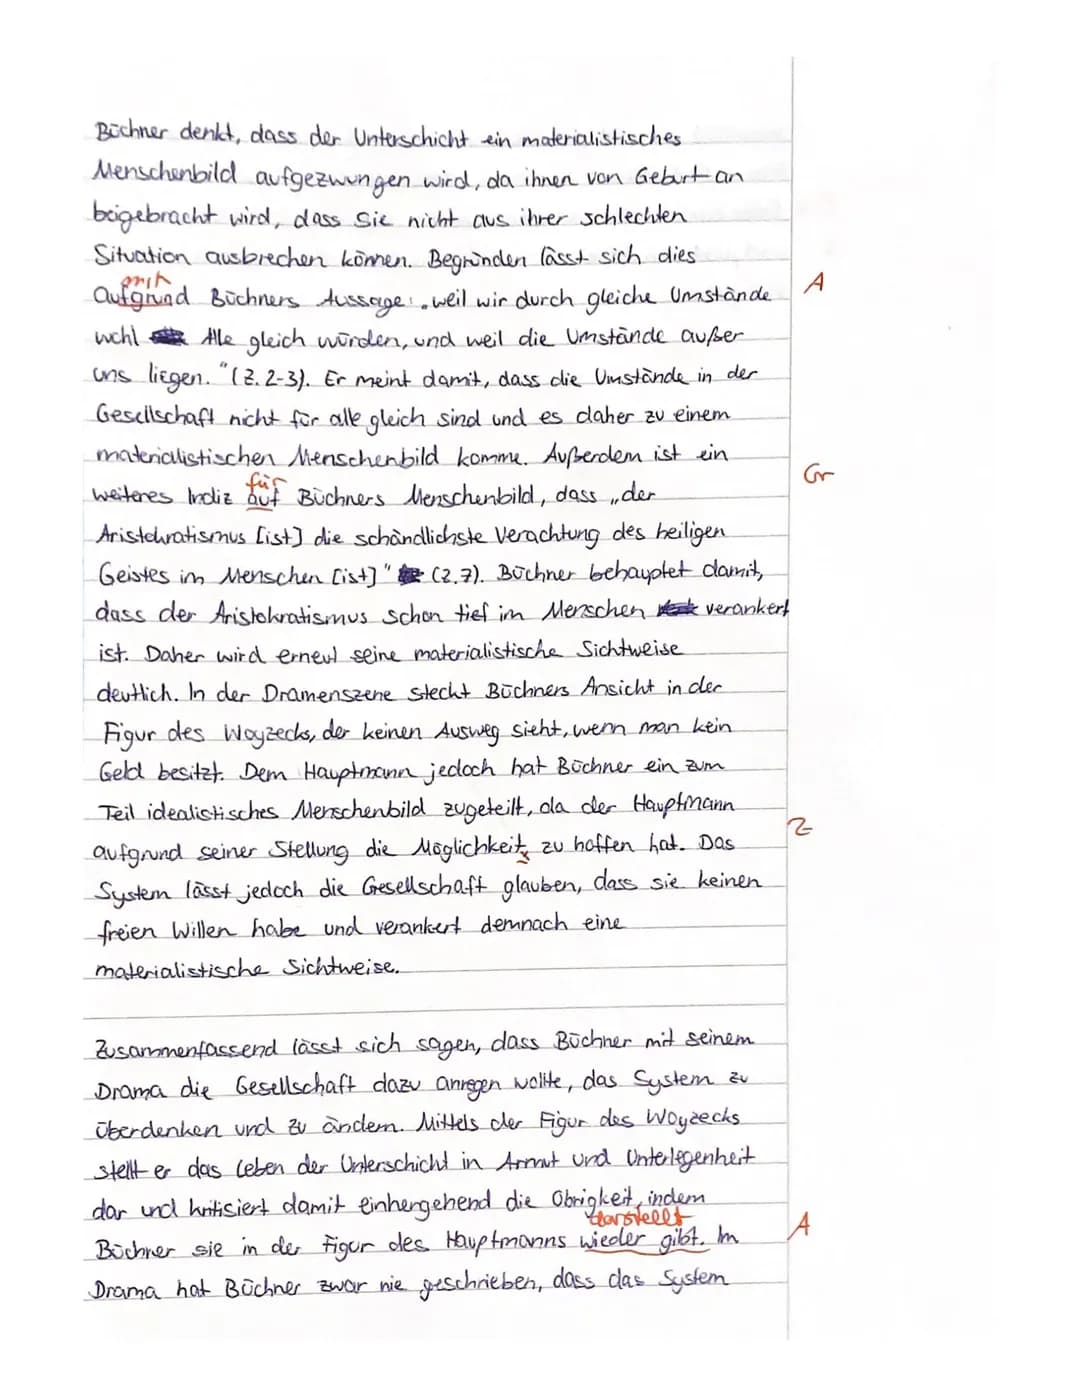 Büchner denkt, dass der Unterschicht ein materialistisches
Menschenbild aufgezwungen wird, da ihnen von Geburt an
beigebracht wird, dass Sie nicht aus ihrer schlechten
Situation ausbrechen können. Begründen lässt sich dies
mit
Aufgrund Büchners Aussage: „weil wir durch gleiche Umstände A
wohl Alle gleich würden, und weil die Umstände außer
uns liegen." (Z. 2-3). Er meint damit, dass die Umstände in der
Gesellschaft nicht für alle gleich sind und es daher zu einem
materialistischen Menschenbild komme. Außerdem ist ein
für
weiteres Indiz auf Büchners Menschenbild, dass „der Gr
Aristokratismus [ist] die schändlichste Verachtung des heiligen
Geistes im Menschen [ist]" (Z.7). Büchner behauptet damit,
dass der Aristokratismus schon tief im Menschen verankert
ist. Daher wird erneut seine materialistische Sichtweise
deutlich. In der Dramenszene steckt Büchners Ansicht in der
Figur des Woyzecks, der keinen Ausweg sieht, wenn man kein
Geld besitzt. Dem Hauptmann jedoch hat Büchner ein zum
Teil idealistisches Menschenbild zugeteilt, da der Hauptmann
aufgrund seiner Stellung die Möglichkeit, zu hoffen hat. Das Z
System lässt jedoch die Gesellschaft glauben, dass sie keinen
freien Willen habe und verankert demnach eine
materialistische Sichtweise.
Zusammenfassend lässt sich sagen, dass Büchner mit seinem
Drama die Gesellschaft dazu anregen wollte, das System zu
überdenken und zu ändern. Mittels der Figur des Woyzecks
stellt er das Leben der Unterschicht in Armut und Unterlegenheit
dar und kritisiert damit einhergehend die Obrigkeit, indem
darstellt
Büchner sie in der Figur des Hauptmanns wieder gibt. Im A
Drama hat Büchner zwar nie geschrieben, dass das System